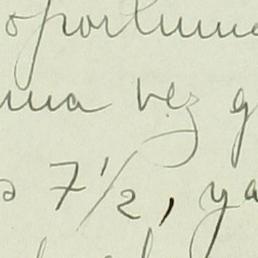 oportuna
una vez g
s 7 1/2, ya